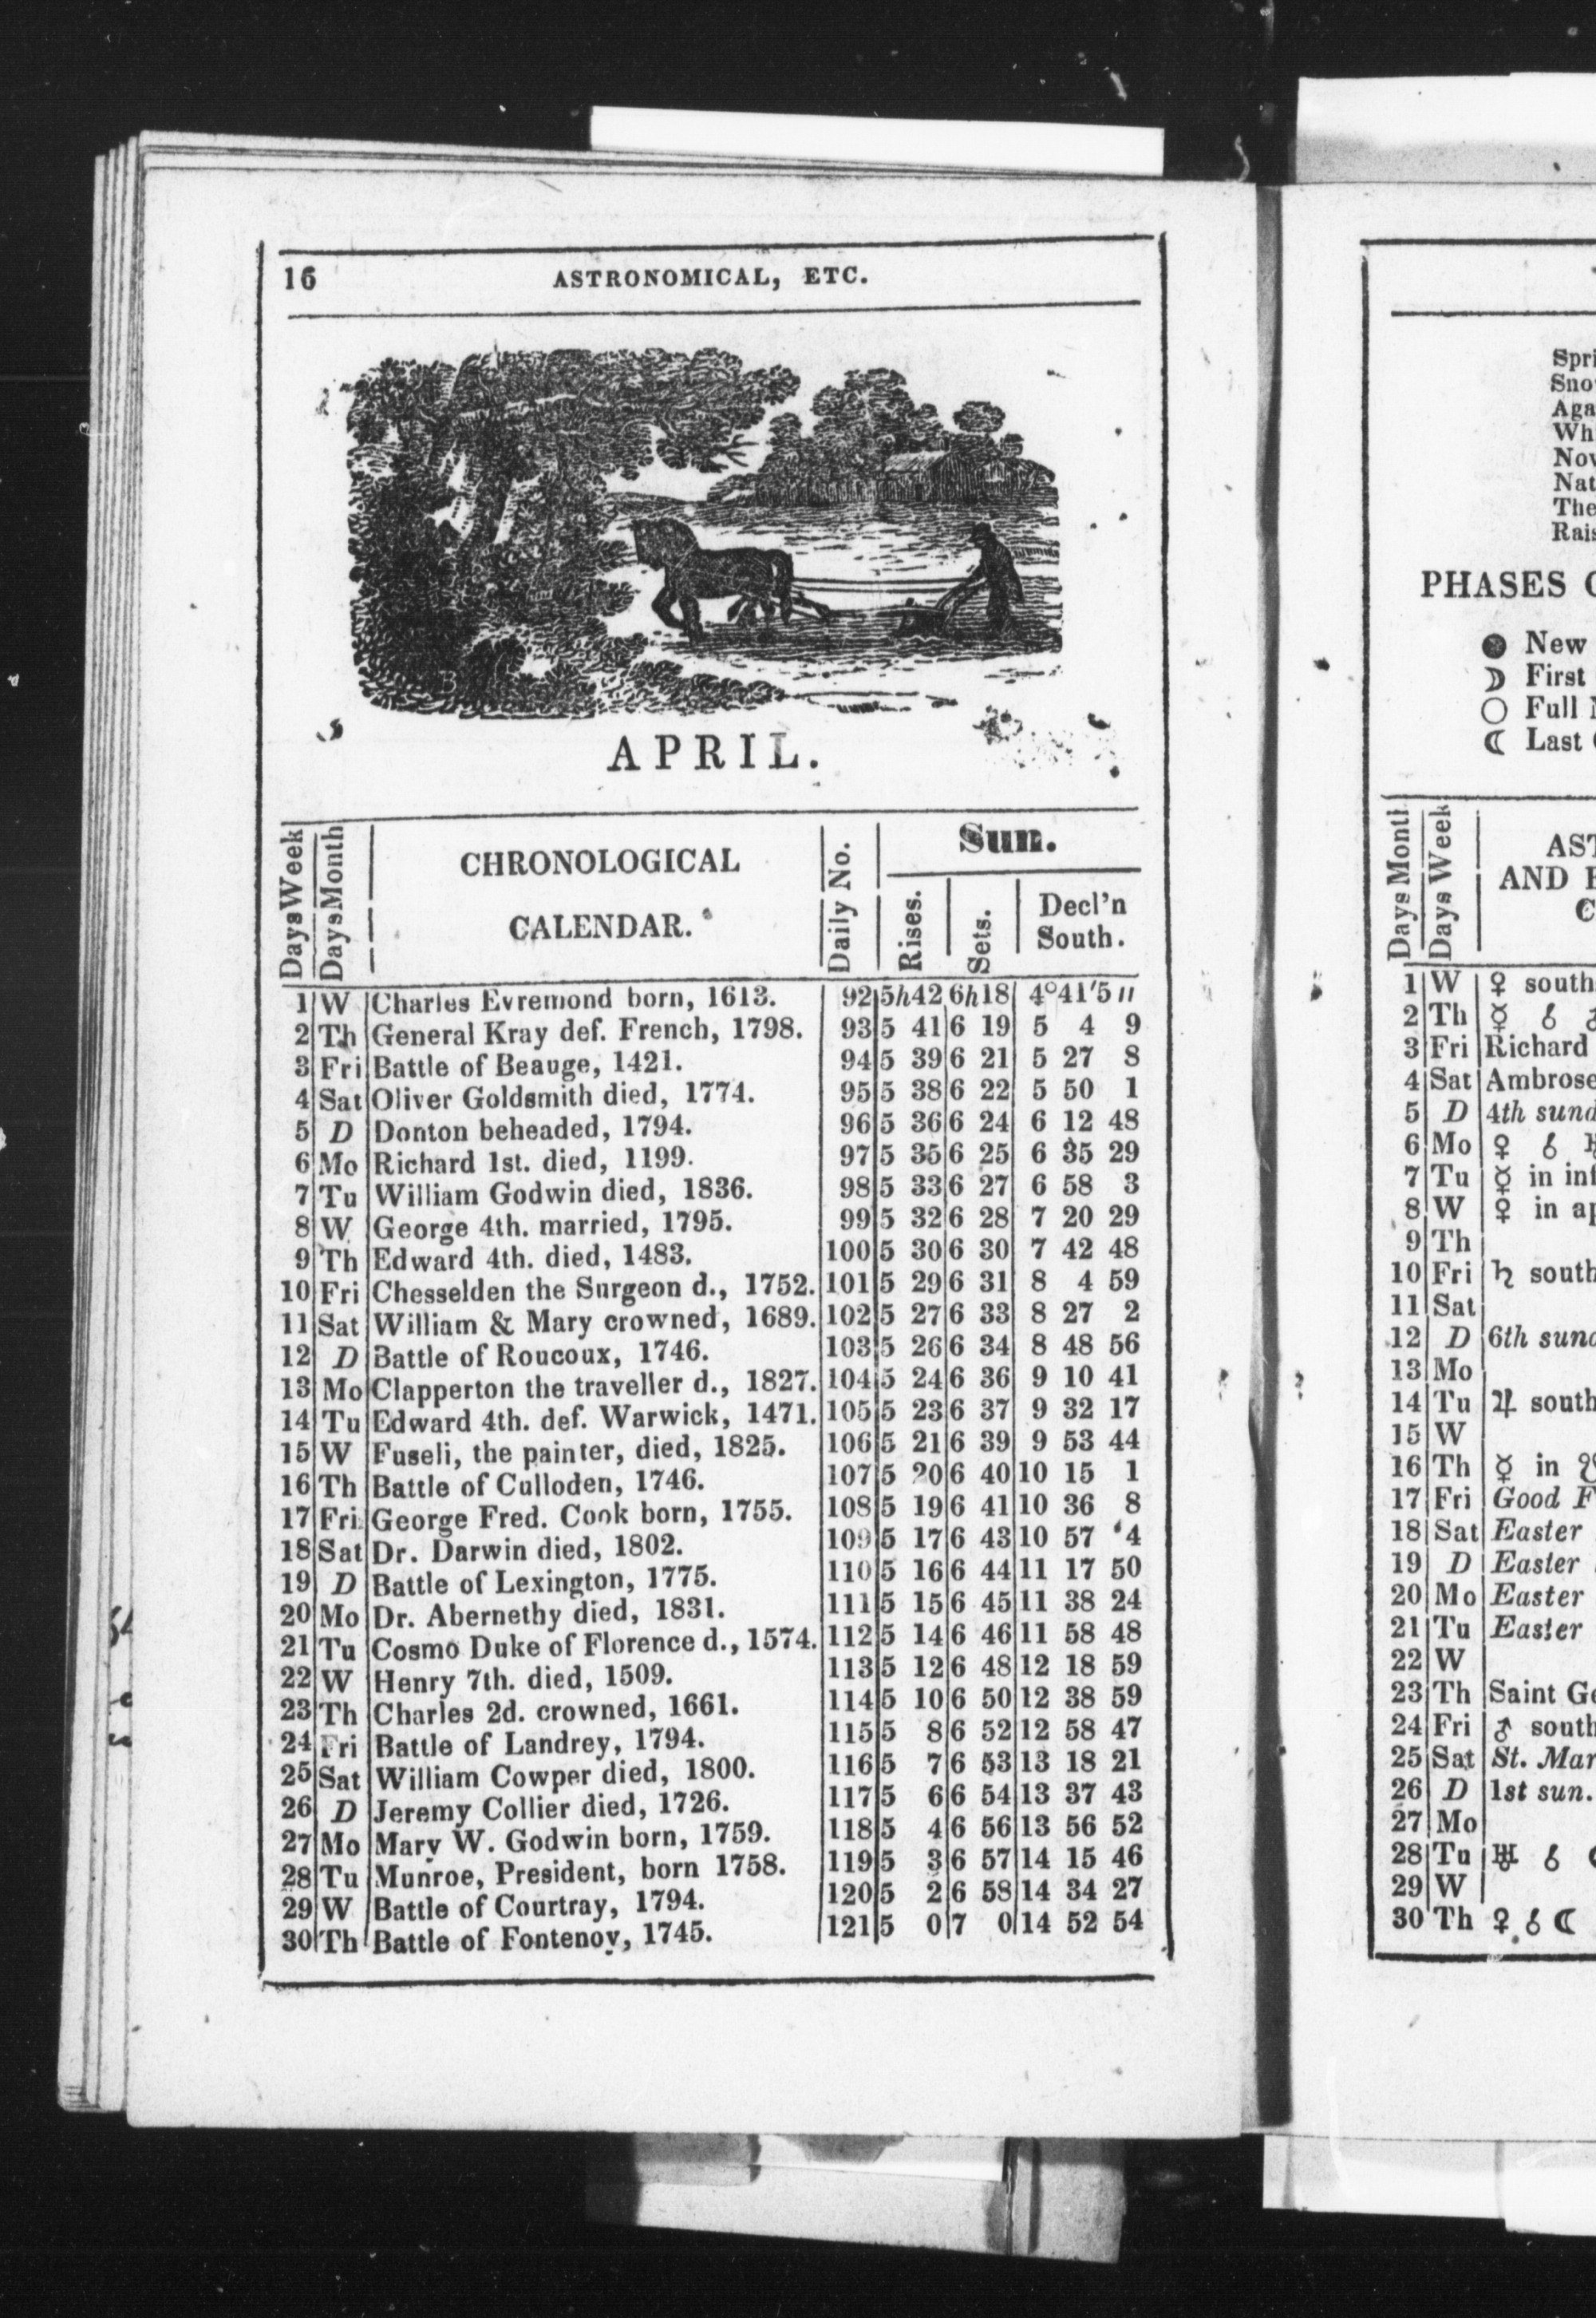 16 ASTRONOMICAL, ETC.
APRIL.
Days Week
Days Month
CHRONOLOGICAL
CALENDAR.
Daily No.
Sun.
Rises.
Sets.
Decl'n
South.
1 W Charles Evremond born, 1613. 92 5h42 6h18 4°41′5″
2 Th General Kray def. French, 1798. 93 5 41 6 19 5 4 9
3 Fri Battle of Beauge, 1421. 94 5 39 6 21 5 27 8
4 Sat Oliver Goldsmith died, 1774. 95 5 38 6 22 5 50 1
5 D Donton beheaded, 1794. 96 5 36 6 24 6 12 48
6 Mo Richard 1st. died, 1199. 97 5 35 6 25 6 35 29
7 Tu William Godwin died, 1836. 98 5 33 6 27 6 58 3
8 W George 4th. married, 1795. 99 5 32 6 28 7 20 29
9 Th Edward 4th. died, 1483. 100 5 30 6 30 7 42 48
10 Fri Chesselden the Surgeon d., 1752. 101 5 29 6 31 8 4 59
11 Sat William & Mary crowned, 1689. 102 5 27 6 33 8 27 2
12 D Battle of Roucoux, 1746. 103 5 26 6 34 8 48 56
13 Mo Clapperton the traveller d., 1827. 104 5 24 6 36 9 10 41
14 Tu Edward 4th. def. Warwick, 1471. 105 5 23 6 37 9 32 17
15 W Fuseli, the painter, died, 1825. 106 5 21 6 39 9 53 44
16 Th Battle of Culloden, 1746. 107 5 20 6 40 10 15 1
17 Fri George Fred. Cook born, 1755. 108 5 19 6 41 10 36 8
18 Sat Dr. Darwin died, 1802. 109 5 17 6 43 10 57 4
19 D Battle of Lexington, 1775. 110 5 16 6 44 11 17 50
20 Mo Dr. Abernethy died, 1831. 111 5 15 6 45 11 38 24
21 Tu Cosmo Duke of Florence d., 1574. 112 5 14 6 46 11 58 48
22 W Henry 7th. died, 1509. 113 5 12 6 48 12 18 59
23 Th Charles 2d. crowned, 1661. 114 5 10 6 50 12 38 59
24 Fri Battle of Landrey, 1794. 115 5 8 6 52 12 58 47
25 Sat William Cowper died, 1800. 116 5 7 6 53 13 18 21
26 D Jeremy Collier died, 1726. 117 5 6 6 54 13 37 43
27 Mo Mary W. Godwin born, 1759. 118 5 4 6 56 13 56 52
28 Tu Munroe, President, born 1758. 119 5 3 6 57 14 15 46
29 W Battle of Courtray, 1794. 120 5 2 6 58 14 34 27
30 Th Battle of Fontenoy, 1745. 121 5 0 7 0 14 52 54
Spri
Sno
Aga
Wh
Nov
Nat
The
Rais
PHASES
● New
☽ First
○ Full
☾ Last
Days Month
Days Week
AST
AND
1 W ♀ south
2 Th ☿ ☌
3 Fri Richard
4 Sat Ambrose
5 D 4th sund
6 Mo ♀ ☌ ♅
7 Tu ☿ in inf
8 W ♀ in ap
9 Th
10 Fri ♄ south
11 Sat
12 D 6th sund
13 Mo
14 Tu ♃ south
15 W
16 Th ☿ in
17 Fri Good F
18 Sat Easter
19 D Easter
20 Mo Easter
21 Tu Easter
22 W
23 Th Saint Ge
24 Fri ♂ south
25 Sat St. Mar
26 D 1st sun.
27 Mo
28 Tu ♅ ☌
29 W
30 Th ♀ ☌ ☾